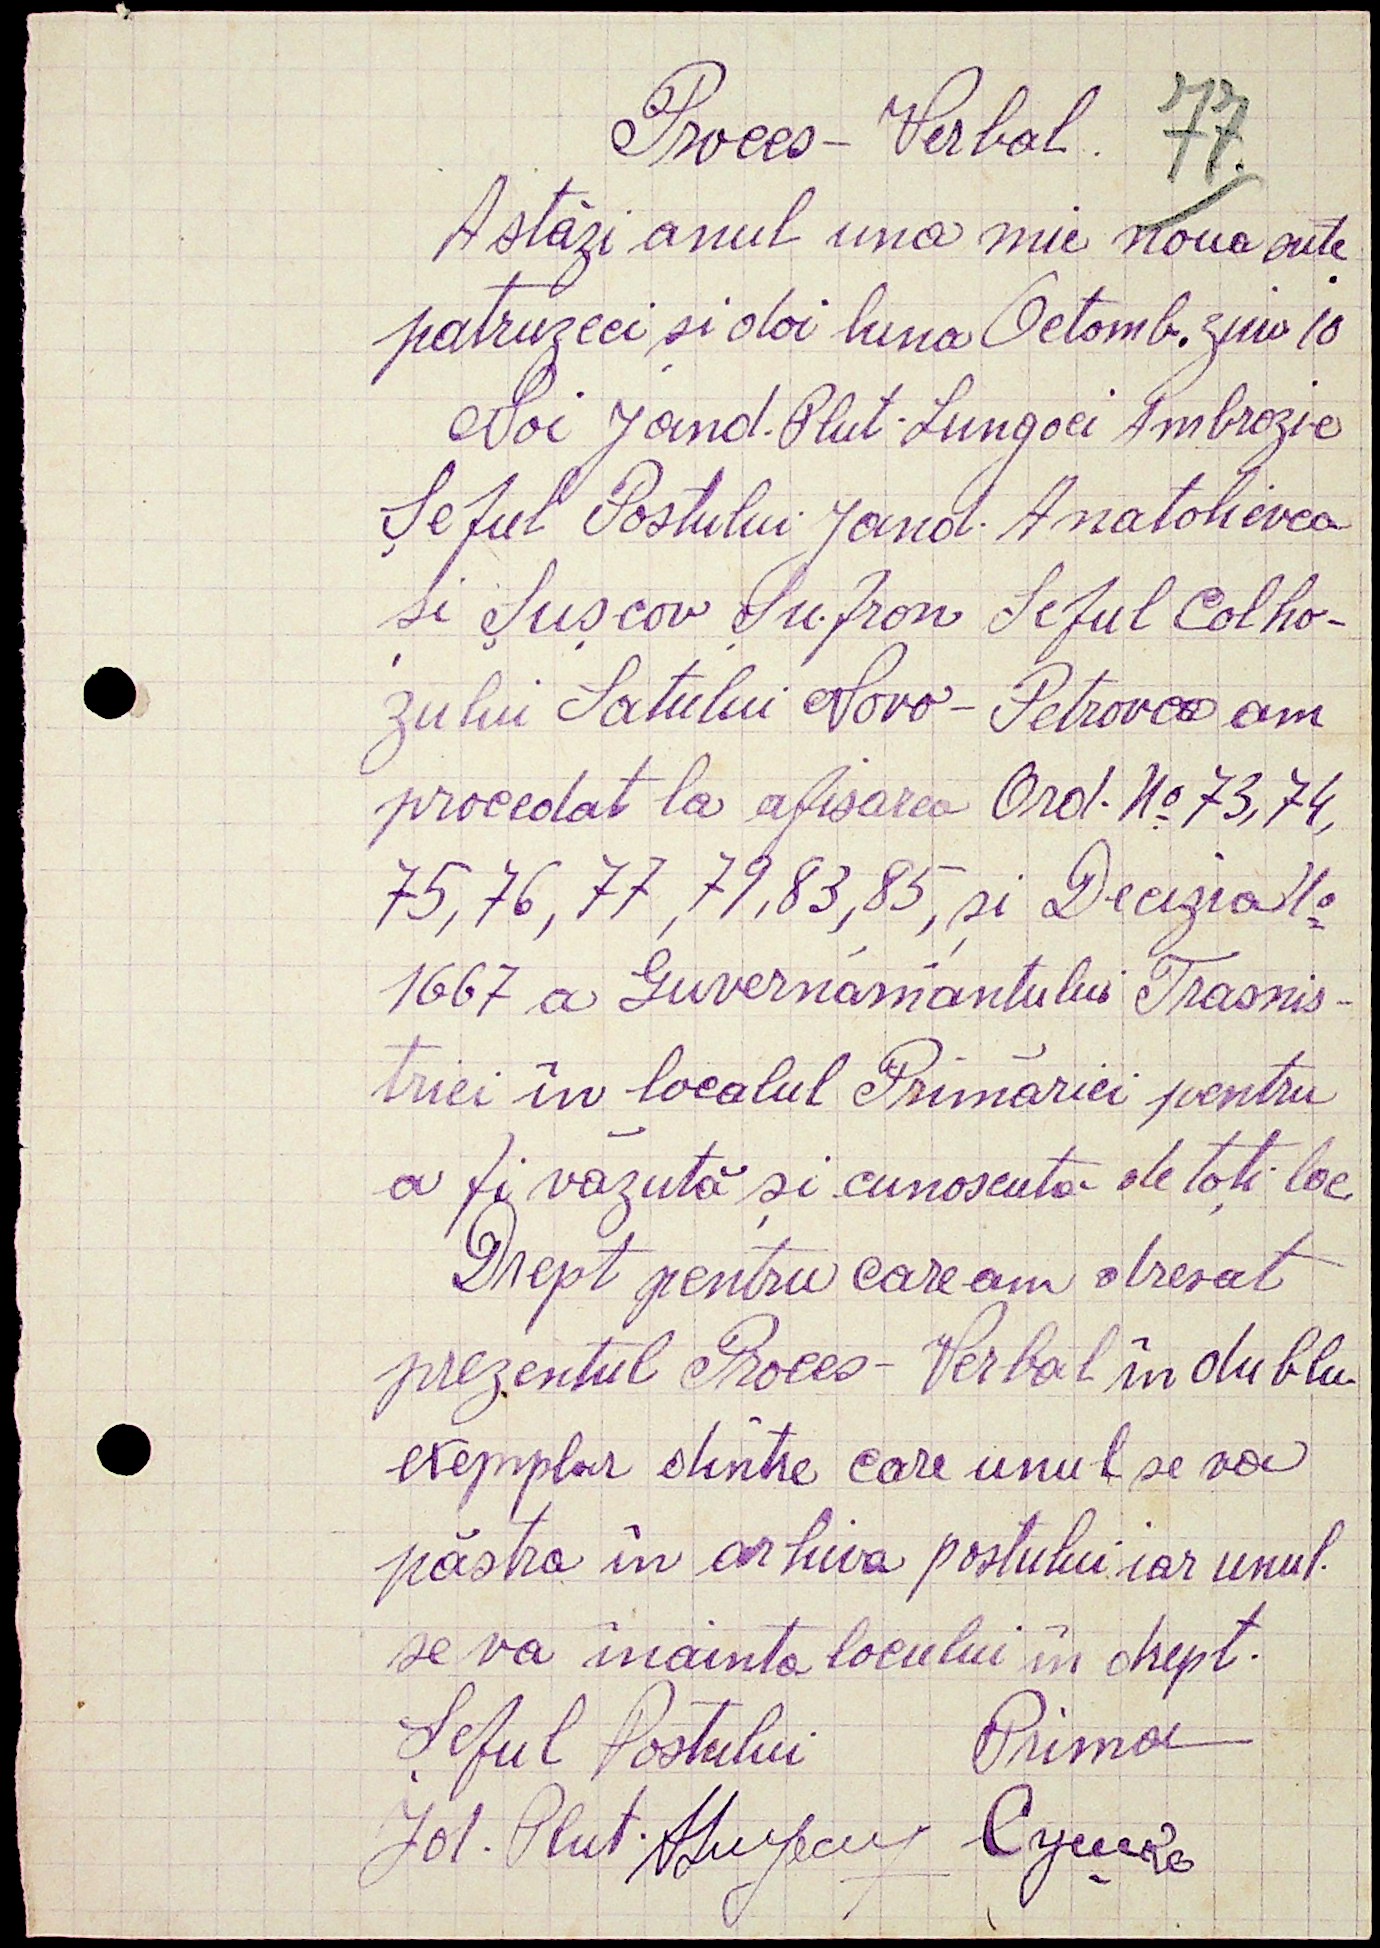 Proces-Verbal. 77.
Astăzi anul una mie noua sute
patruzeci și doi luna Octomb. ziua 10
Noi Jand. Plut. Lungoci Ambrozie
Șeful Postului Jand. Anatolievca
și Șușcov Su.fron Seful Colho-
zului Satului Novo-Petrovca am
procedat la afisarea Ord. No 73, 74,
75, 76, 77, 79, 83, 85, și Decizia No
1667 a Guvernământului Trasnis-
triei în localul Primăriei pentru
a fi văzută și cunoscuta de toți loc
Drept pentru care am dresat
prezentul Proces-Verbal în dublu
exemplar dintre care unul se va
păstra în arhiva postului iar unul
se va inainta locului în drept.
Șeful Postului Prima
Jd. Plut.